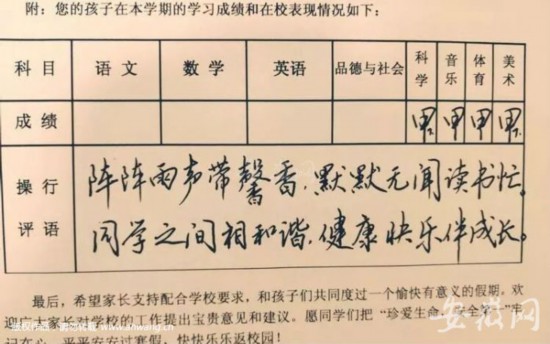 附：您的孩子在本学期的学习成绩和在校表现情况如下：
科目 语文 数学 英语 品德与社会 科学 音乐 体育 美术
成绩 甲 甲 甲 甲
操行评语
阵阵雨声带馨香，默默无闻读书忙。
同学之间相和谐，健康快乐伴成长。
最后，希望家长支持配合学校要求，和孩子们共同度过一个愉快有意义的假期。欢
迎广大家长对学校的工作提出宝贵意见和建议。愿同学们把“珍爱生命，安全第一”牢
记在心，平平安安过寒假，快快乐乐返校园！
安徽网
www.ahwang.cn